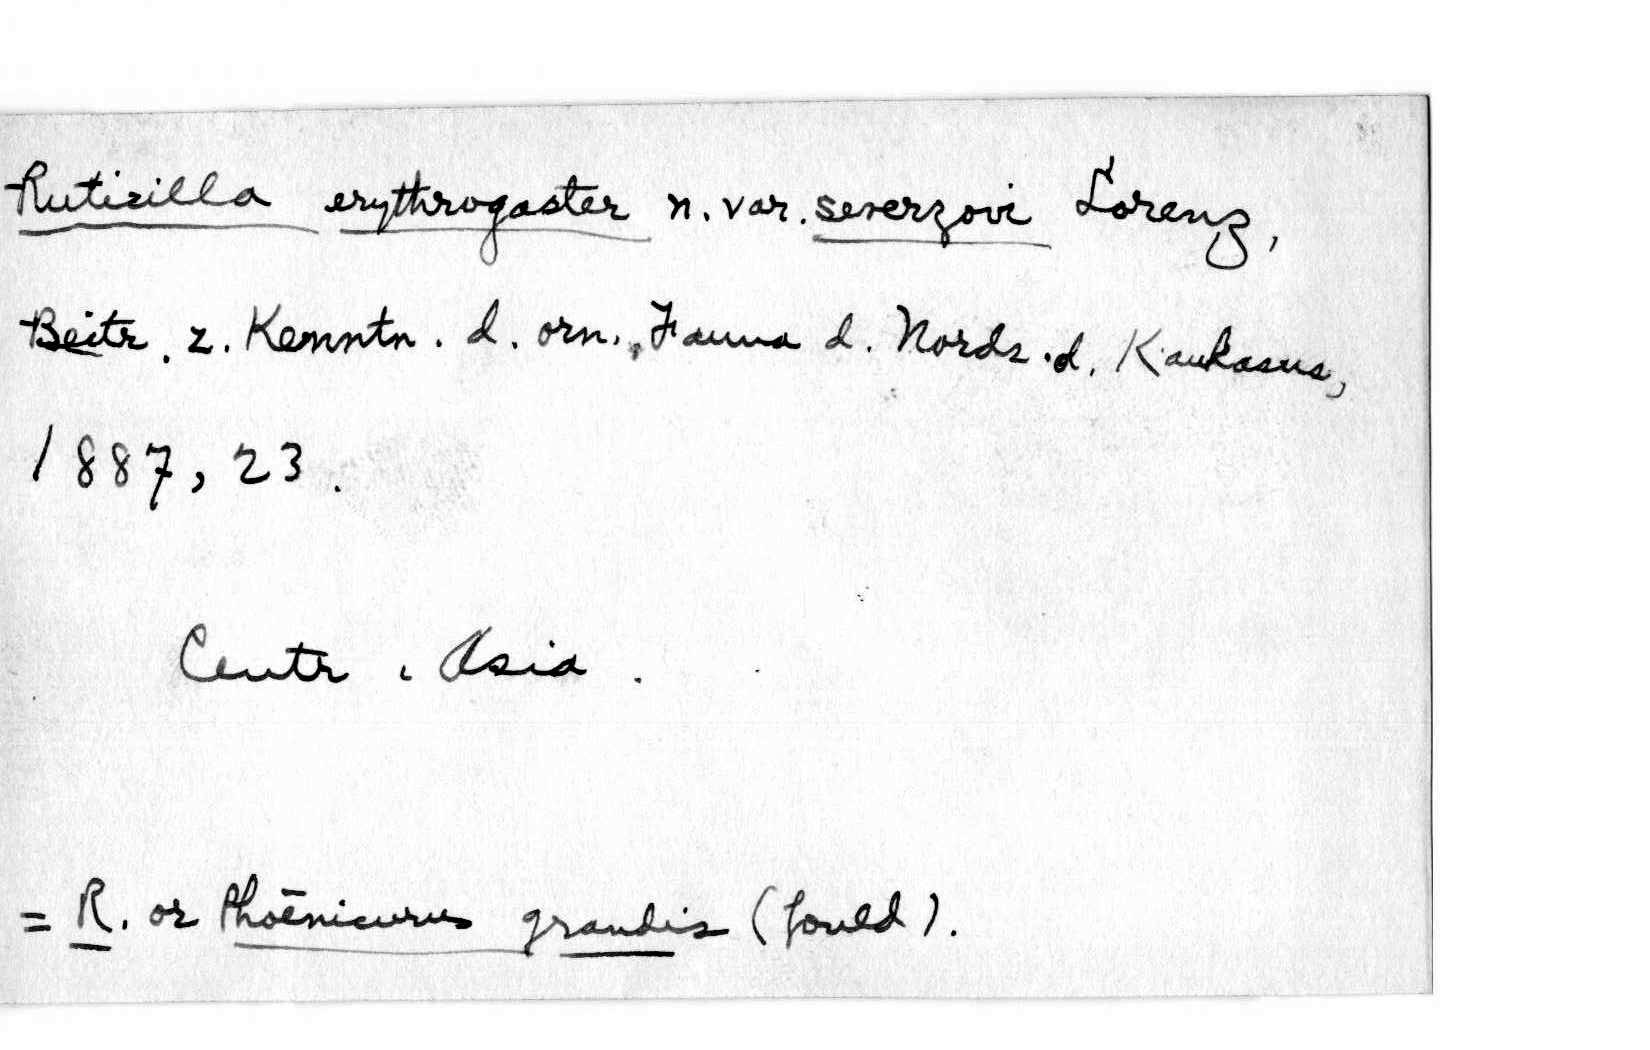 Rutizilla erythrogaster n. var. severzovi Lorenz,
Beitr. z. Kenntn. d. orn. Fauna d. Nords. d. Kaukasus,
1887, 23.
Centr. Asia.
= R. or Phoenicurus grandis (Gould).